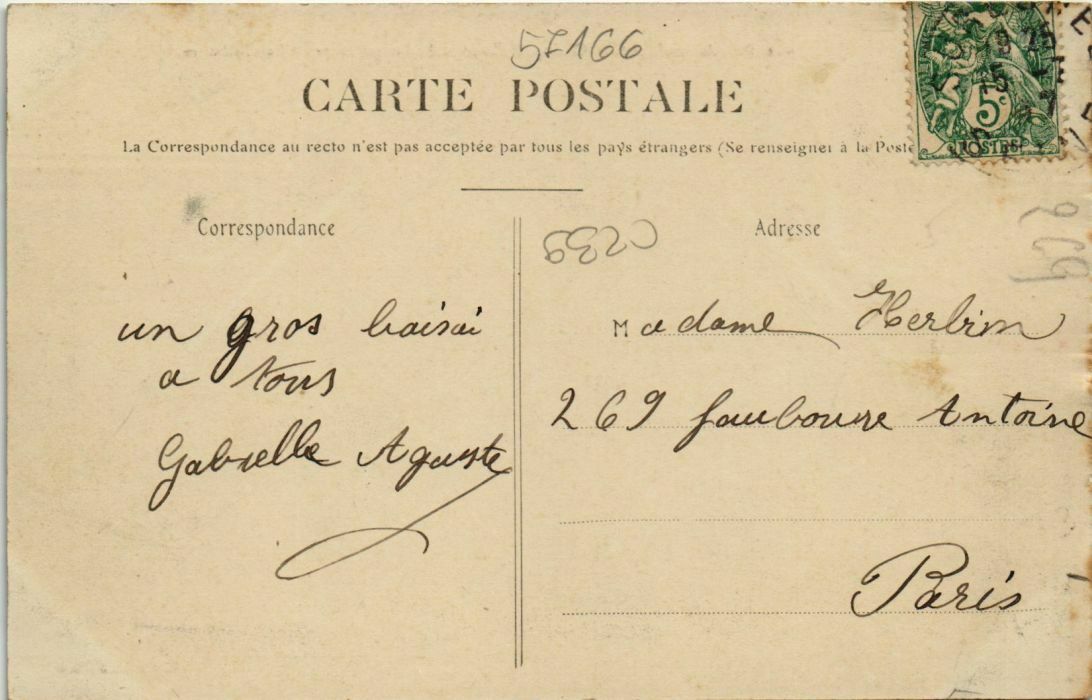 57166
CARTE POSTALE
La Correspondance au recto n'est pas acceptée par tous les pays étrangers (Se renseigner à la Poste
5c
POSTES
Correspondance
un gros baisai
a tous
Gabrielle Aguste
0239
Adresse
209
Madame Herbin
269 fauboure Antoine
Paris